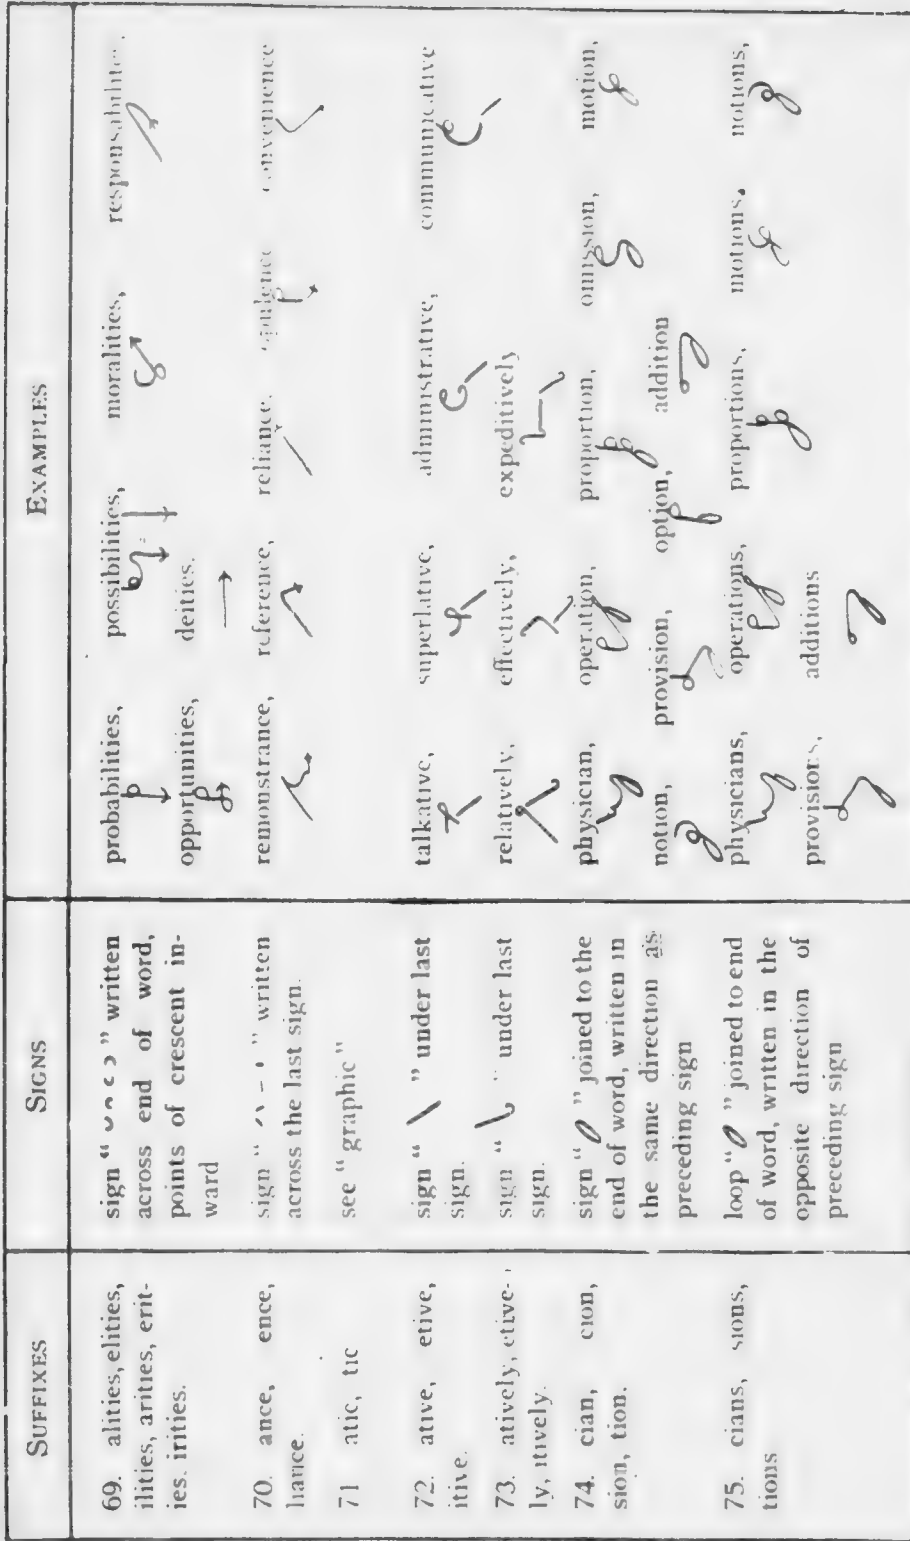 SUFFIXES
SIGNS
EXAMPLES
69. alities, elities,
ilities, arities, erit-
ies. irities.
sign “ ” written
across end of word,
points of crescent in-
ward
probabilities, possibilities, moralities,
opportunities, deities.
70. ance, ence,
liance.
sign “ ” written
across the last sign.
remonstrance, reference, reliance, opulence convenience
71 atic, tic
see “graphic”
72. ative, etive,
itive.
sign “ ” under last
sign.
talkative, superlative, administrative, communicative
73. atively, etive-
ly, itively.
sign “ ” under last
sign.
relatively, effectively, expeditively
74. cian, cion,
sion, tion.
sign “ ” joined to the
end of word, written in
the same direction as
preceding sign
physician, operation, proportion, omission, motion,
notion, provision, option, addition
75. cians, sions,
tions
loop “ ” joined to end
of word, written in the
opposite direction of
preceding sign
physicians, operations, proportions, motions, notions,
provisions, additions